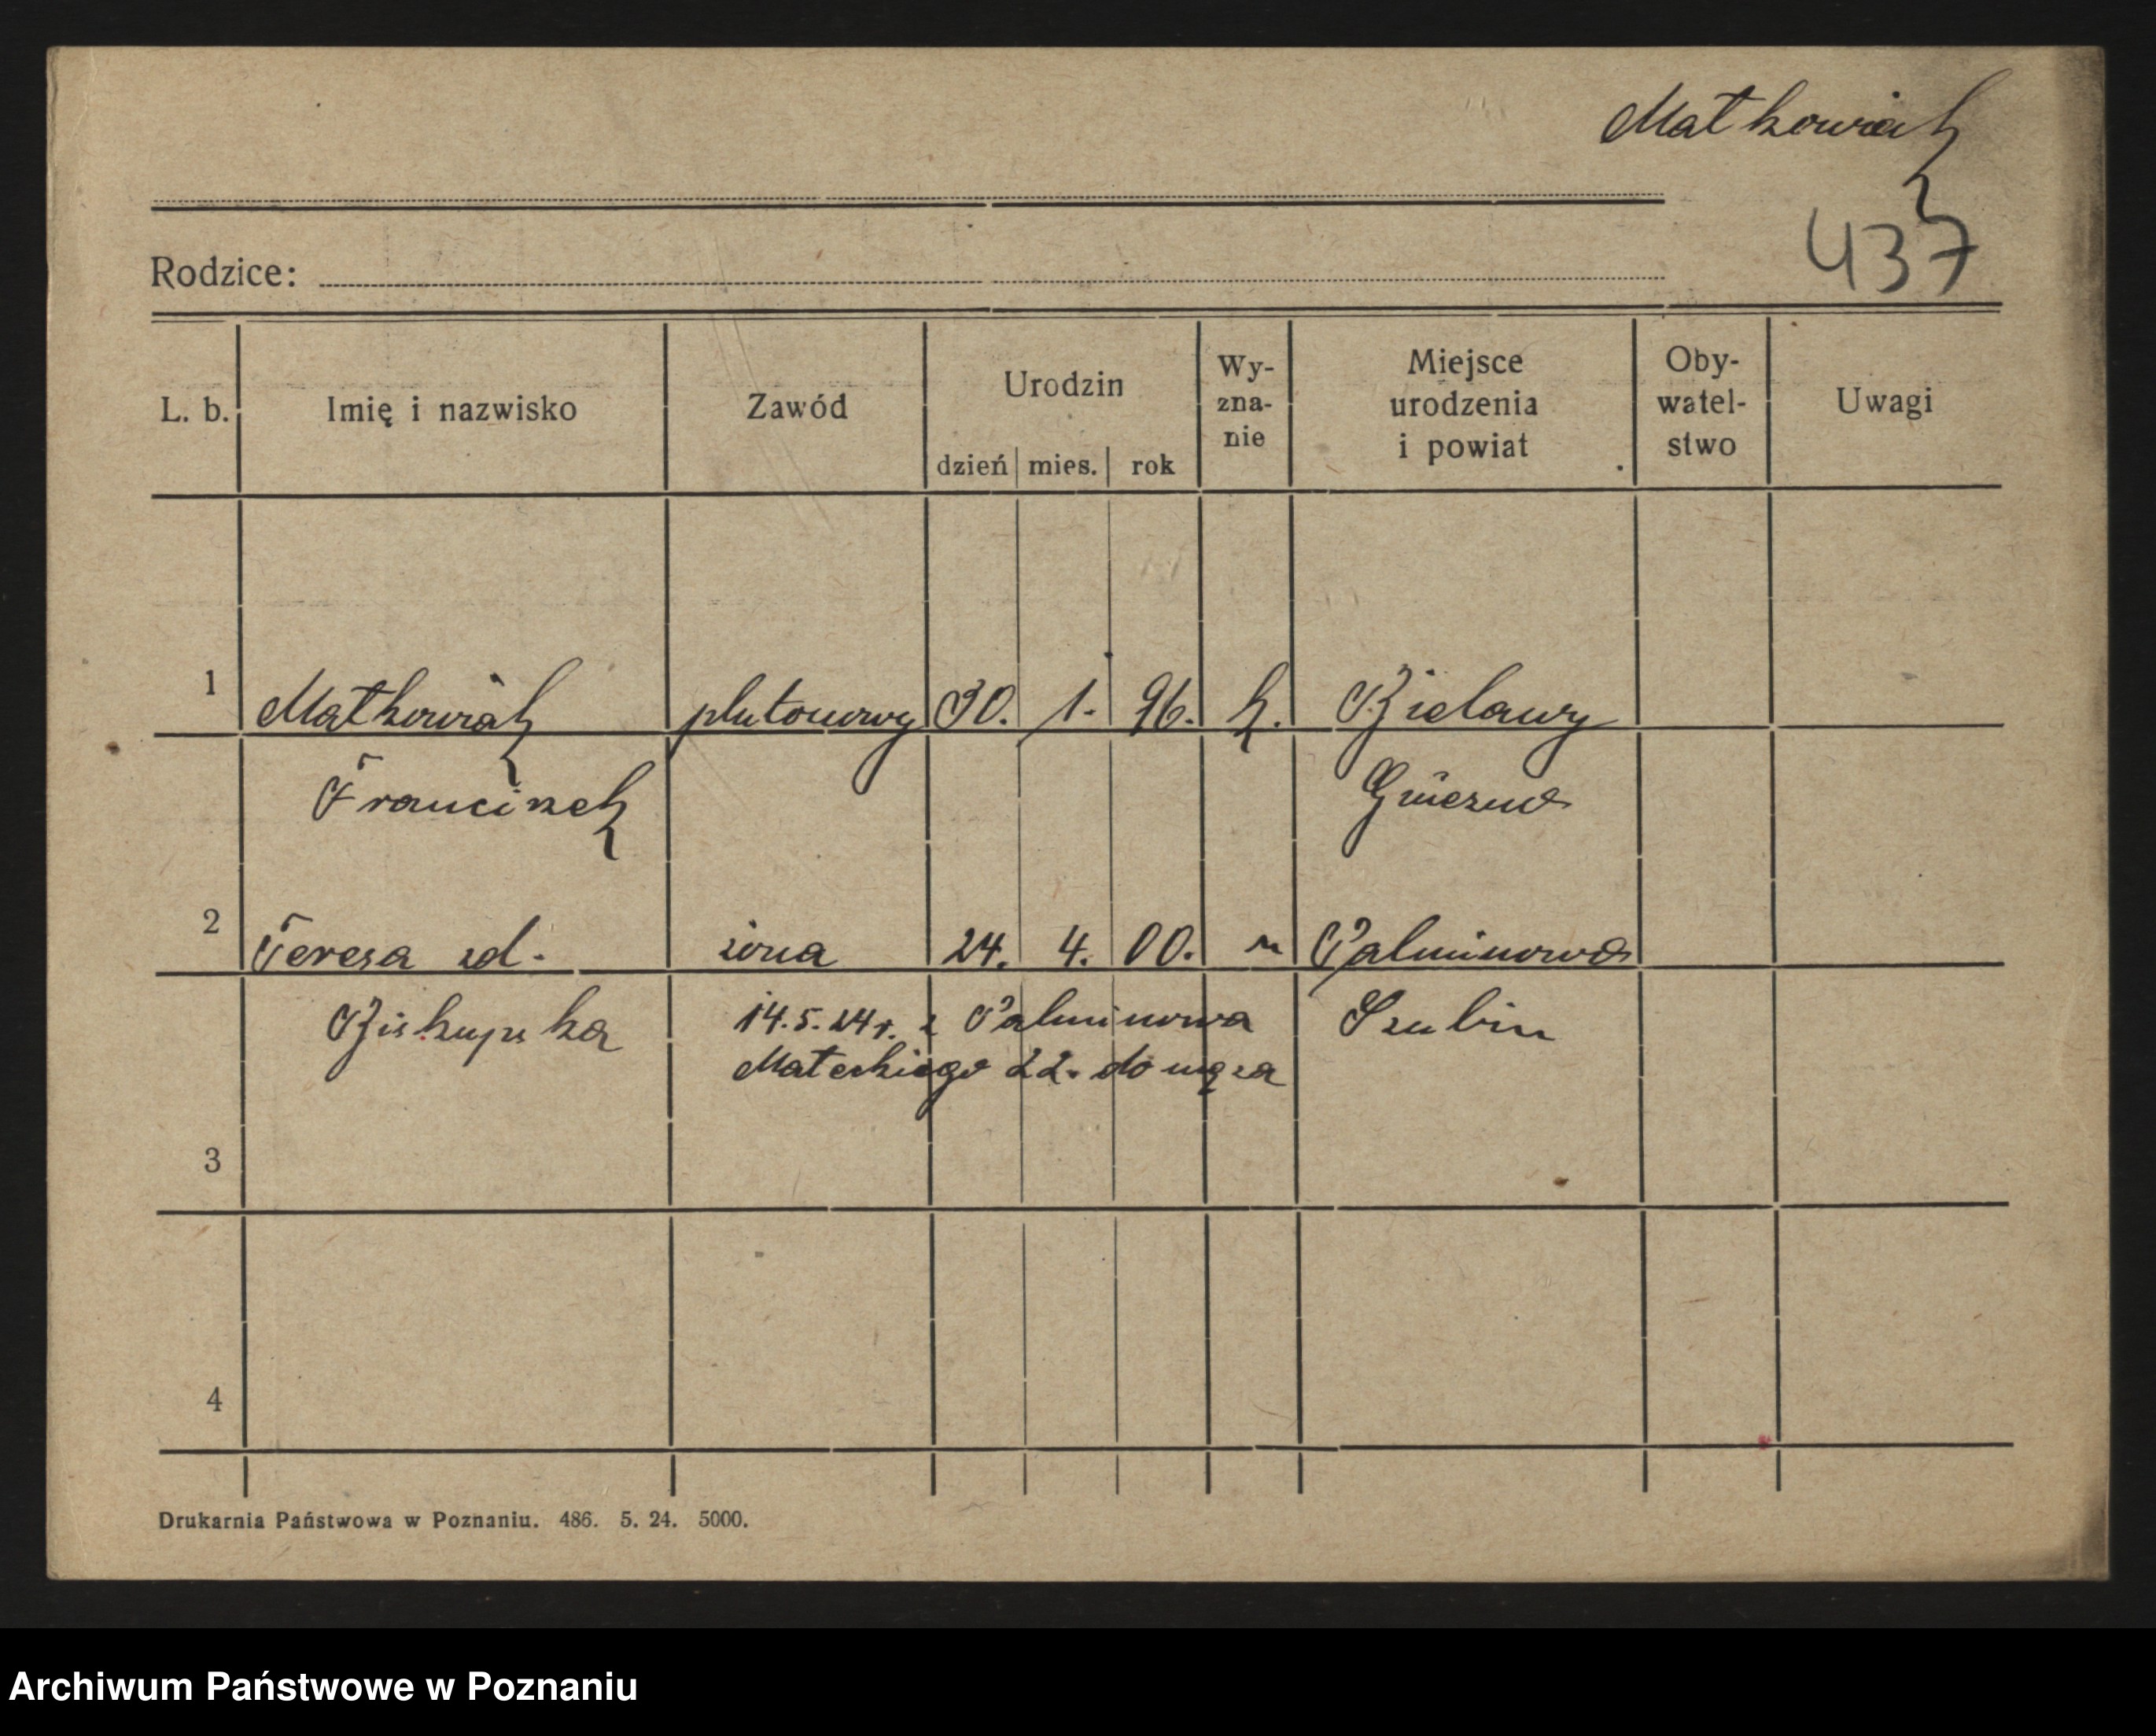 Matkowiak
437
Rodzice:
L. b. Imię i nazwisko Zawód Urodzin dzień mies. rok Wy-zna-nie Miejsce urodzenia i powiat Oby-watel-stwo Uwagi
1 Matkowiak plutonowy 30. 1. 96. k. Bielawy
Franciszek Gniezno
2 Teresa zd. żona 24. 4. 00. " Palminowo
Biskupska 14.5.24r. z Palminowa Szubin
Mateckiego 22. do męża
3
4
Drukarnia Państwowa w Poznaniu. 486. 5. 24. 5000.
Archiwum Państwowe w Poznaniu